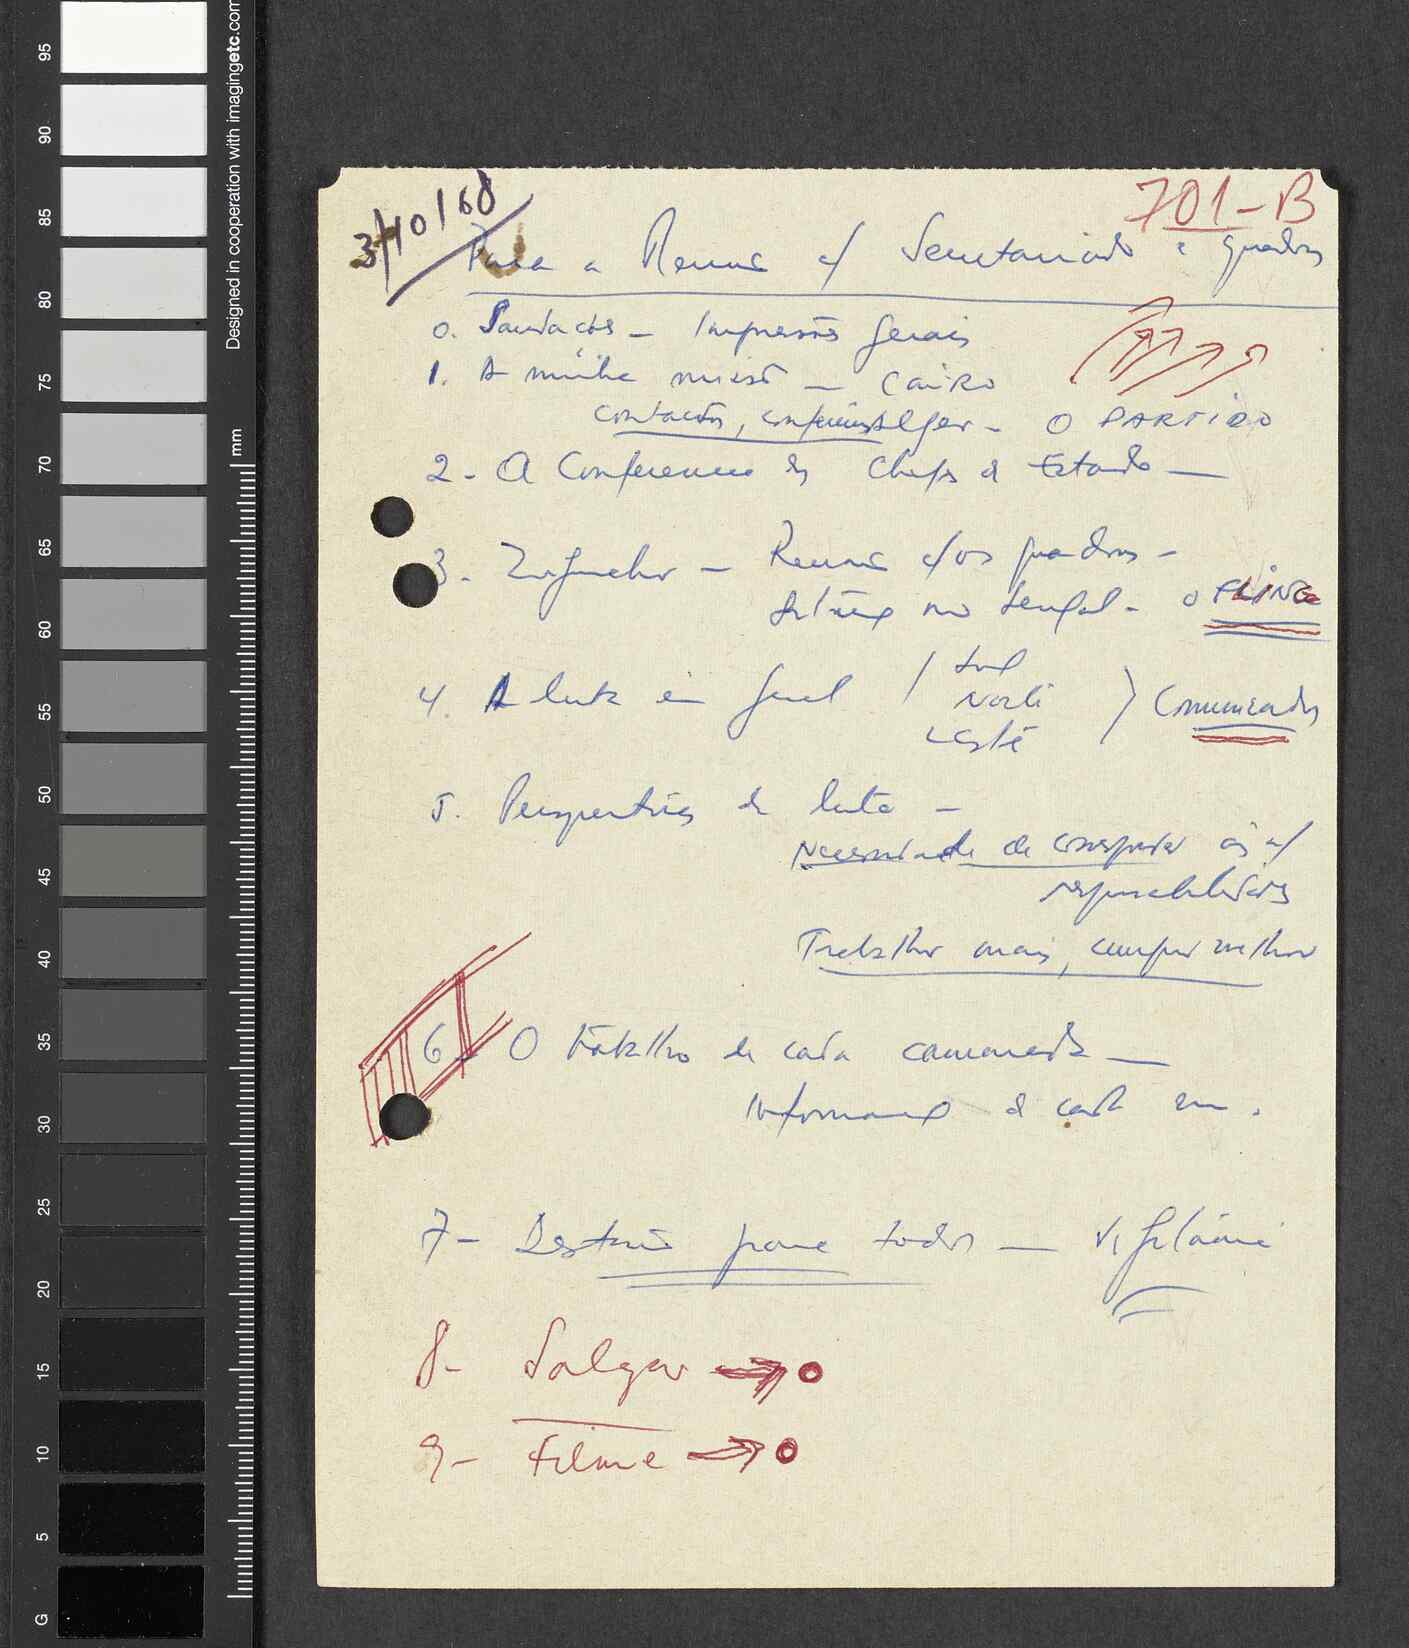 95
90
85
80
75
70
65
60
55
50
45
40
35
30
25
20
15
10
5
G
Designed in cooperation with imagingetc.com
mm
3/10/68
701-B
Para a Reunião c/ Secretariado e quadros
0. Saudações - Impressões gerais
1. A minha missão - CAIRO
contactos, Alger - O PARTIDO
2 - A Conferência dos Chefes de Estado -
3. Ziguinchor - Reunião c/ os quadros -
Situação no Senegal - o FLING
4. A luta em geral / Sul
Norte
Leste
) Comunicados
5. Perspectivas da luta -
Necessidade de
responsabilidades
Trabalhar mais, cumprir melhor
6 - O trabalho de cada camarada -
Informação de cada um.
7 - para todos - Vigilância
8 - Salgar
9 - Filme